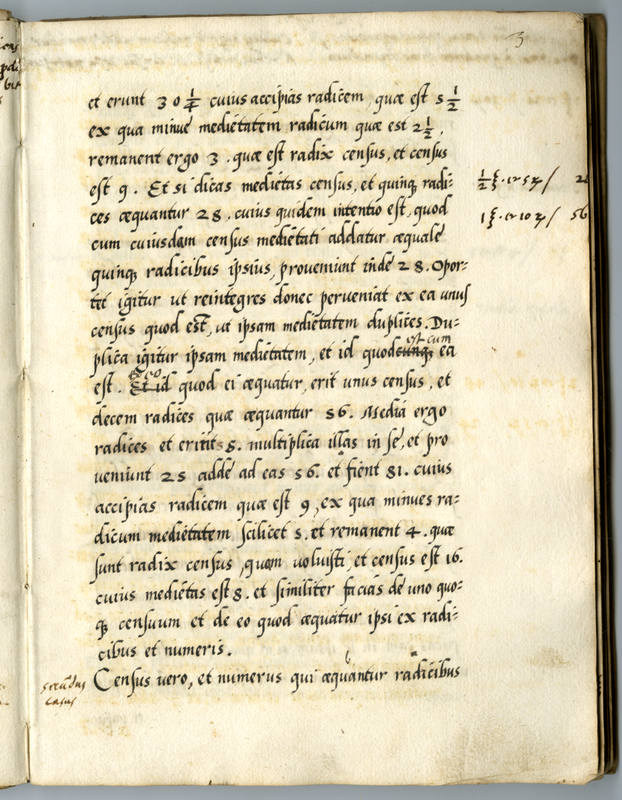 3
et erunt 30 1/4 cuius accipias radicem, quæ est 5 1/2
ex qua minue medietatem radicum quæ est 2 1/2.
remanent ergo 3. quæ est radix census, et census
est 9. Et si dicas medietas census, et quinq; radi:
ces æquantur 28. cuius quidem intentio est, quod
cum cuiusdam census medietati addatur æquale
quinq; radicibus ipsius, proveniunt inde 28. Opor:
tet igitur ut reintegres donec perveniat ex ea unus
census quod est, ut ipsam medietatem duplices. Du:
plica igitur ipsam medietatem, et id quod est cum ea
est. Et id quod ei æquatur, erit unus census, et
decem radices quæ æquantur 56. Media ergo
radices et erit 5. multiplica illas in se, et pro
veniunt 25 adde ad eas 56. et fient 81. cuius
accipias radicem quæ est 9, ex qua minues ra:
dicum medietatem scilicet 5. et remanent 4. quæ
sunt radix census, quam voluisti, et census est 16.
cuius medietas est 8. et similiter facias de uno quo:
q; censuum et de eo quod æquatur ipsi ex radi:
cibus et numeris.
Census vero, et numerus qui æquantur radicibus
secundus
casus